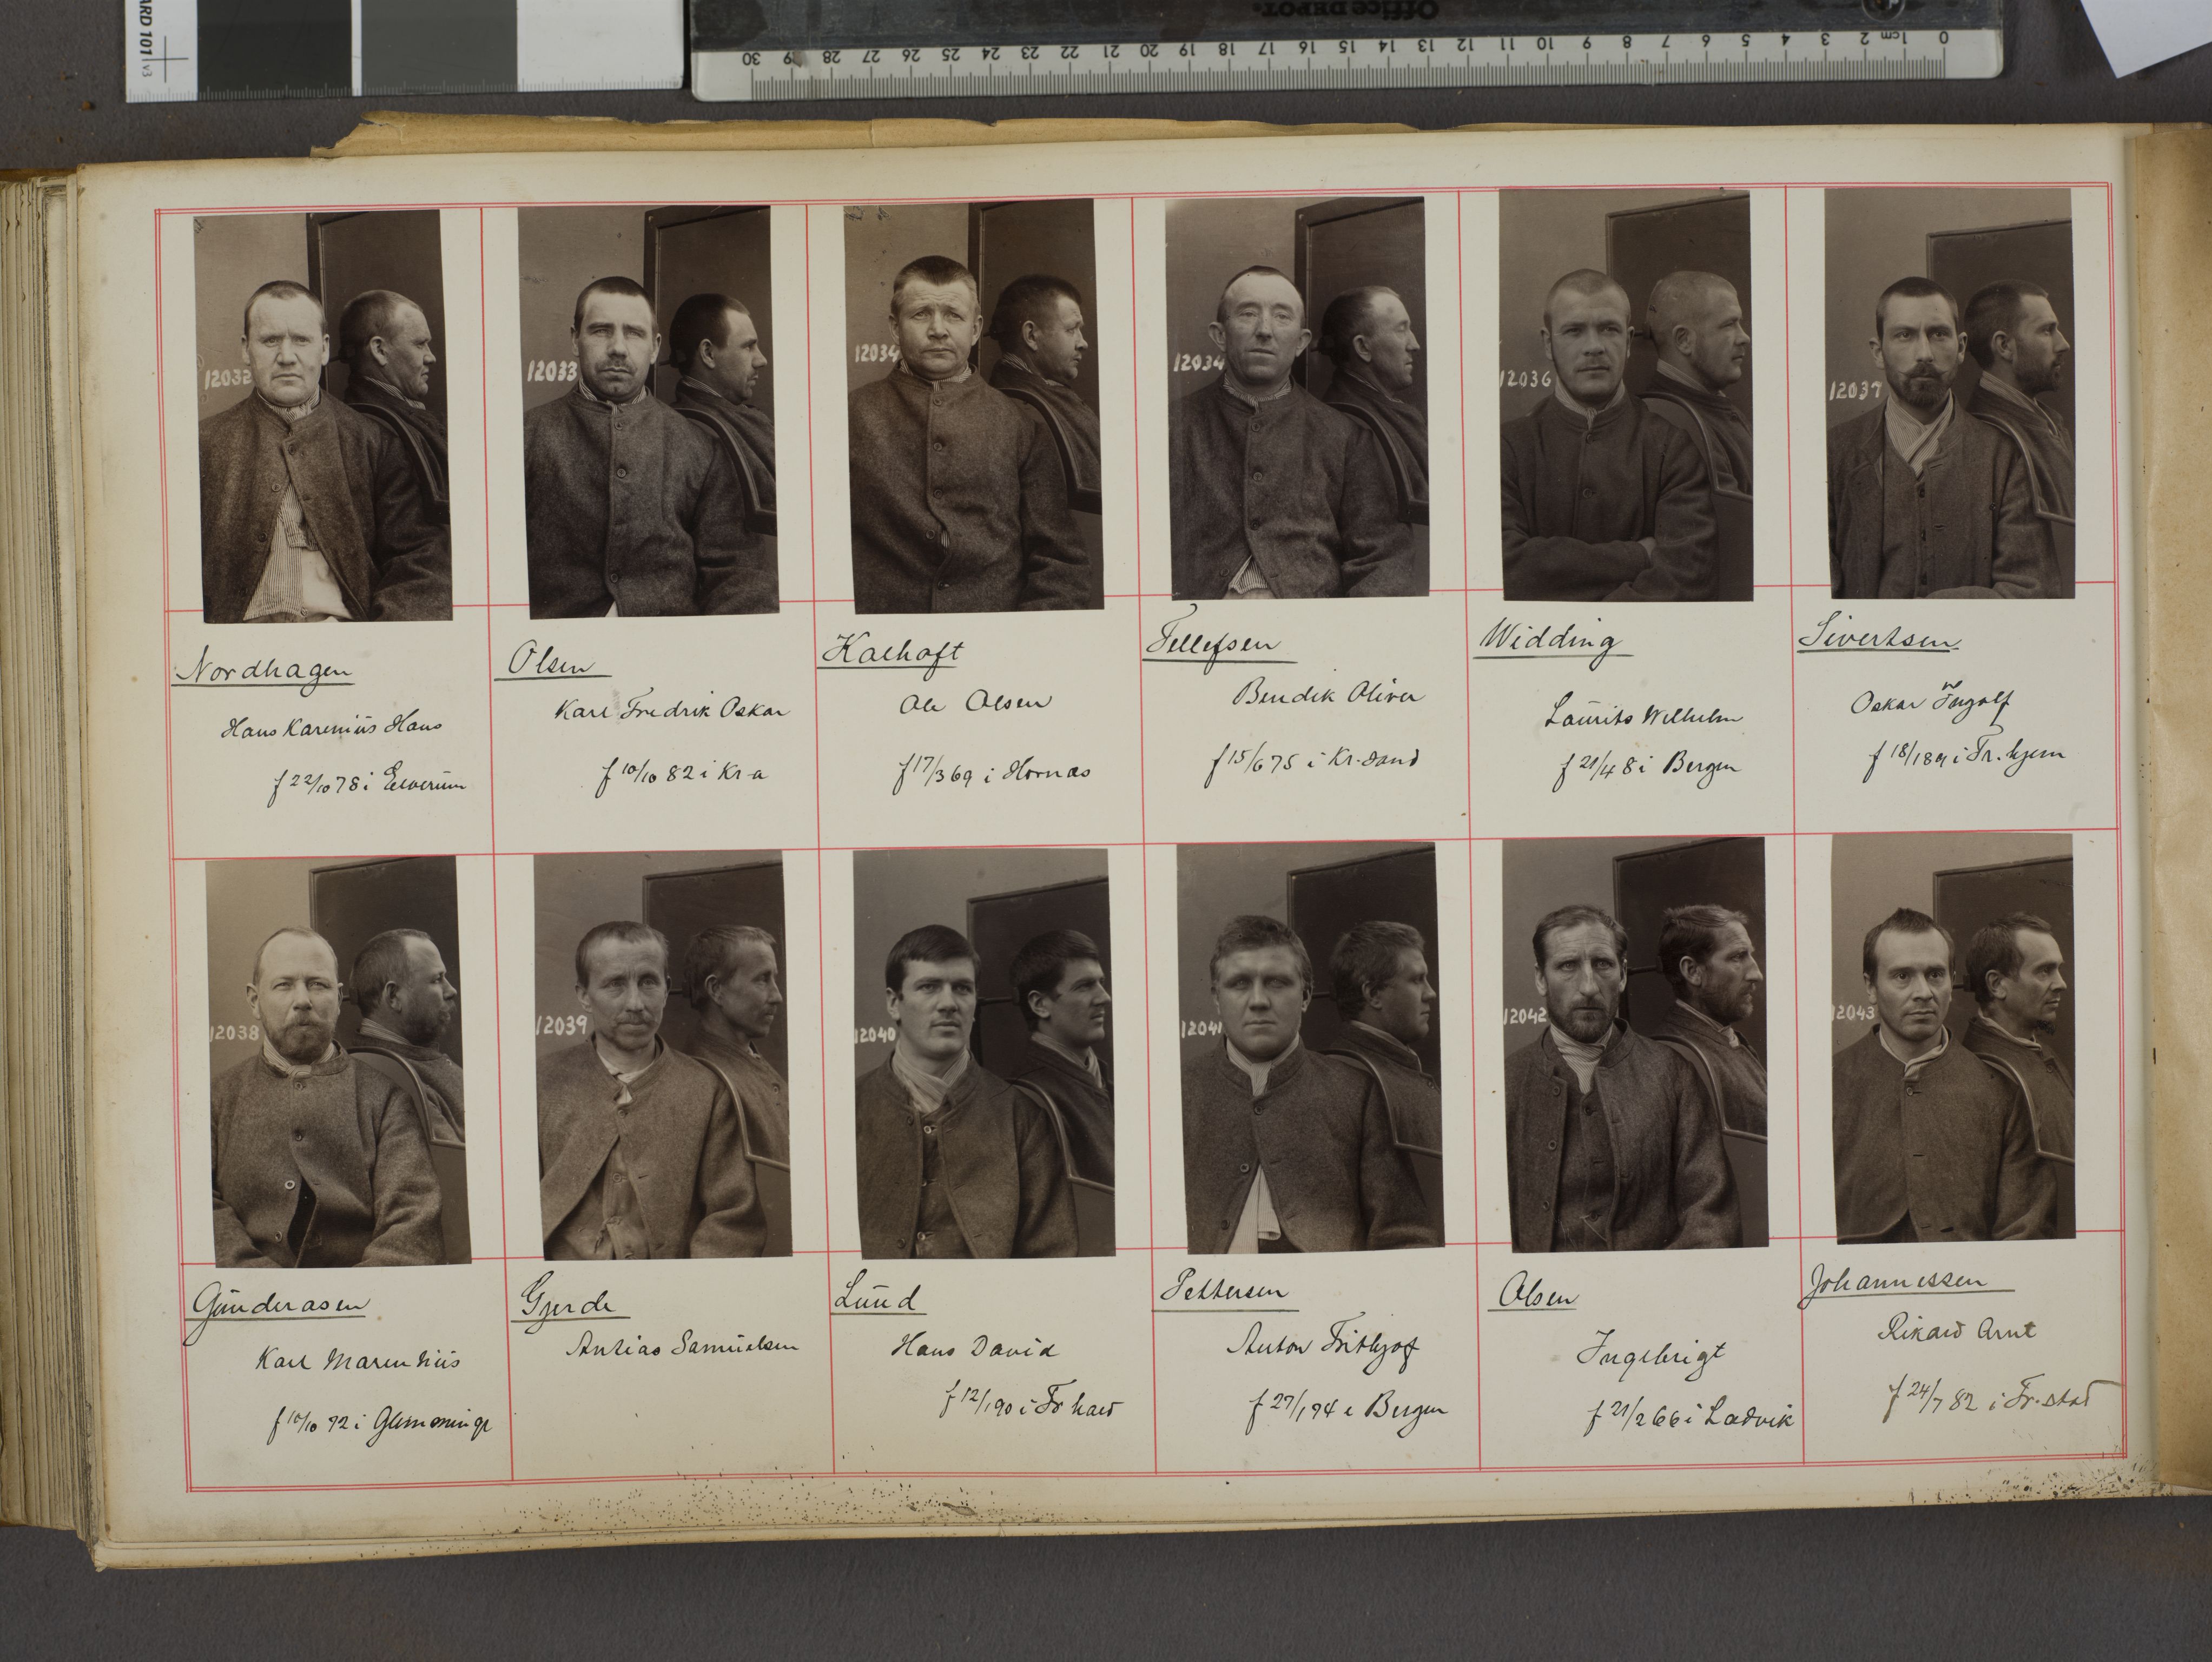 ARD 101 v3
Office DEPOT.
0 1cm 2 3 4 5 6 7 8 9 10 11 12 13 14 15 16 17 18 19 20 21 22 23 24 25 26 27 28 29 30
12032
12033
12034
12034
12036
12037
Nordhagen
Hans Karenius Hans
f 22/10 78 i Elverum
Olsen
Karl Fredrik Oskar
f 10/10 82 i Kr-a
Kalhaft
Ole Olsen
f 17/3 69 i Hornæs
Tellefsen
Bendik Oliver
f 15/6 75 i Kr.sand
Widding
Laurits Wilhelm
f 21/4 8 i Bergen
Sivertsen
Oskar Ingolf
f 18/1 89 i Tr.hjem
12038
12039
12040
12041
12042
12043
Gundersen
Karl Marentius
f 10/10 72 i Glemminge
Gjerde
Antias Samuelsen
Lund
Hans David
f 12/1 90 i Fr hald
Pettersen
Anton Frithjof
f 27/1 94 i Bergen
Olsen
Ingebrigt
f 21/2 66 i Ladvik
Johannessen
Rikard Arnt
f 24/7 82 i Fr.stad